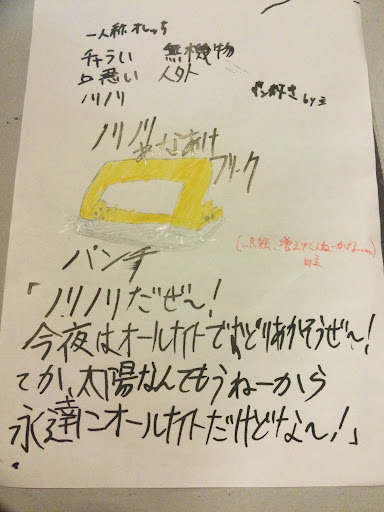 一人称 オレっち
チャラい 無機物
口悪い 人外
ノリノリ
パン好き by主
ノリノリ
あなあけ
フリーク
パンチ
by主
「ノリノリだぜ〜!
今夜はオールナイトでおどりあかそうぜ〜!
てか、太陽なんてもうねーから
永遠にオールナイトだけどな〜!」